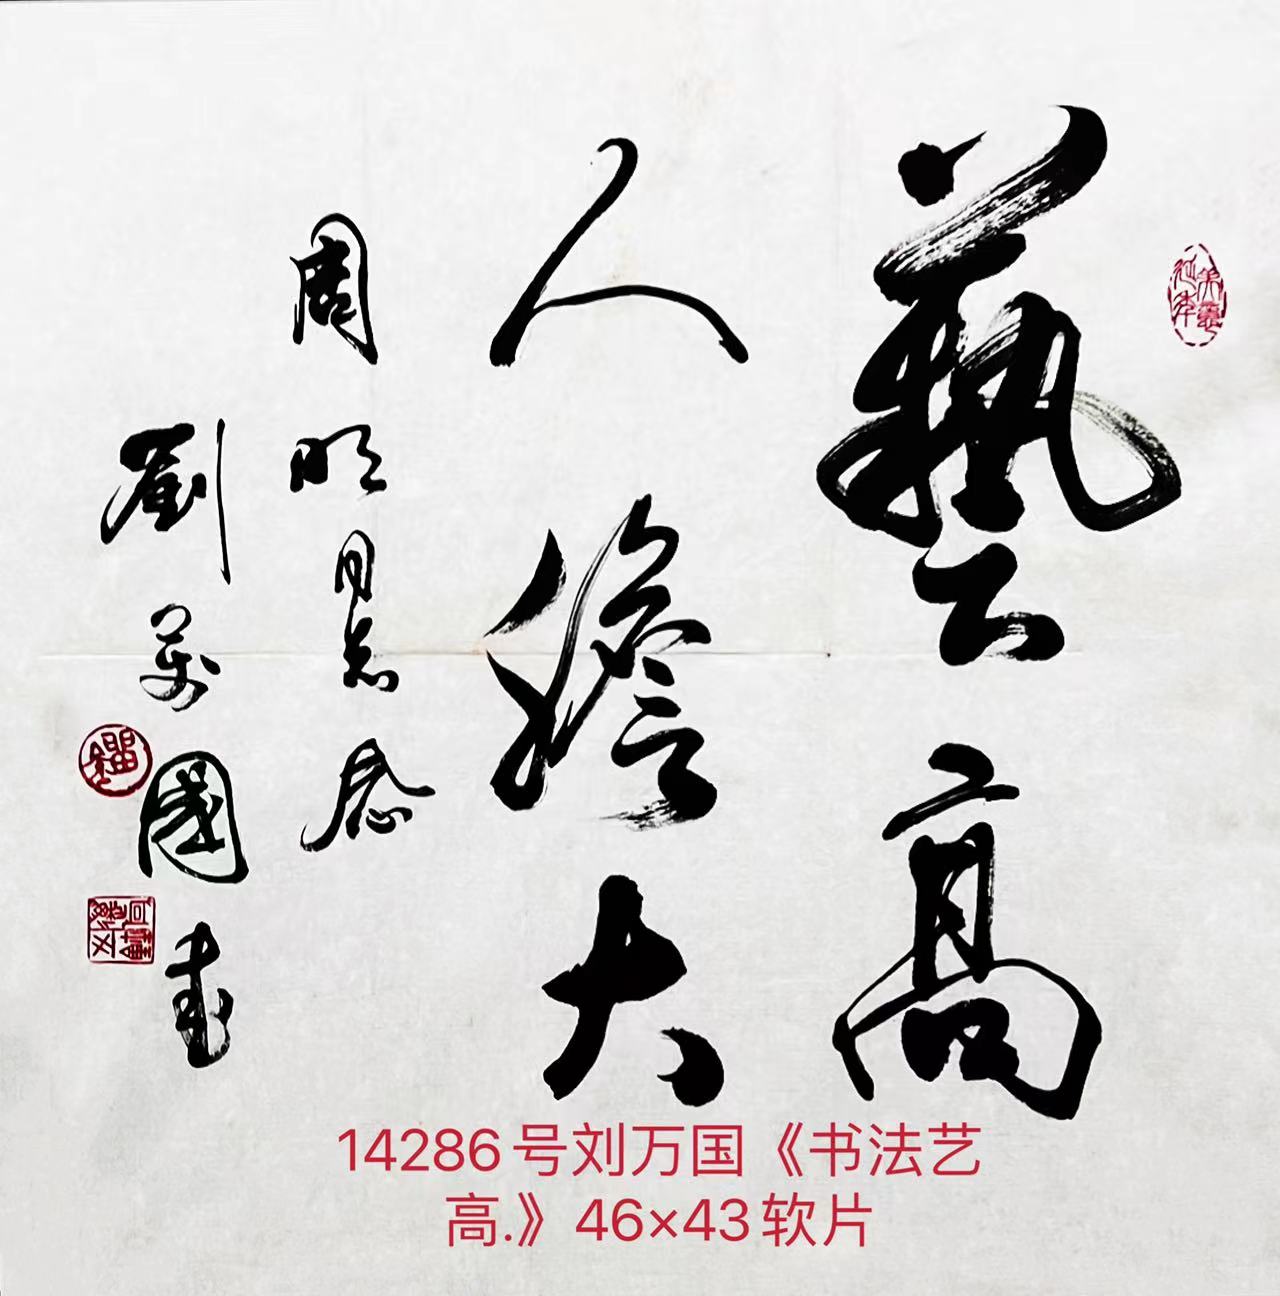 藝高
人膽大
周明同志念
劉萬國書
美意延年
14286号刘万国《书法艺
高.》46×43软片